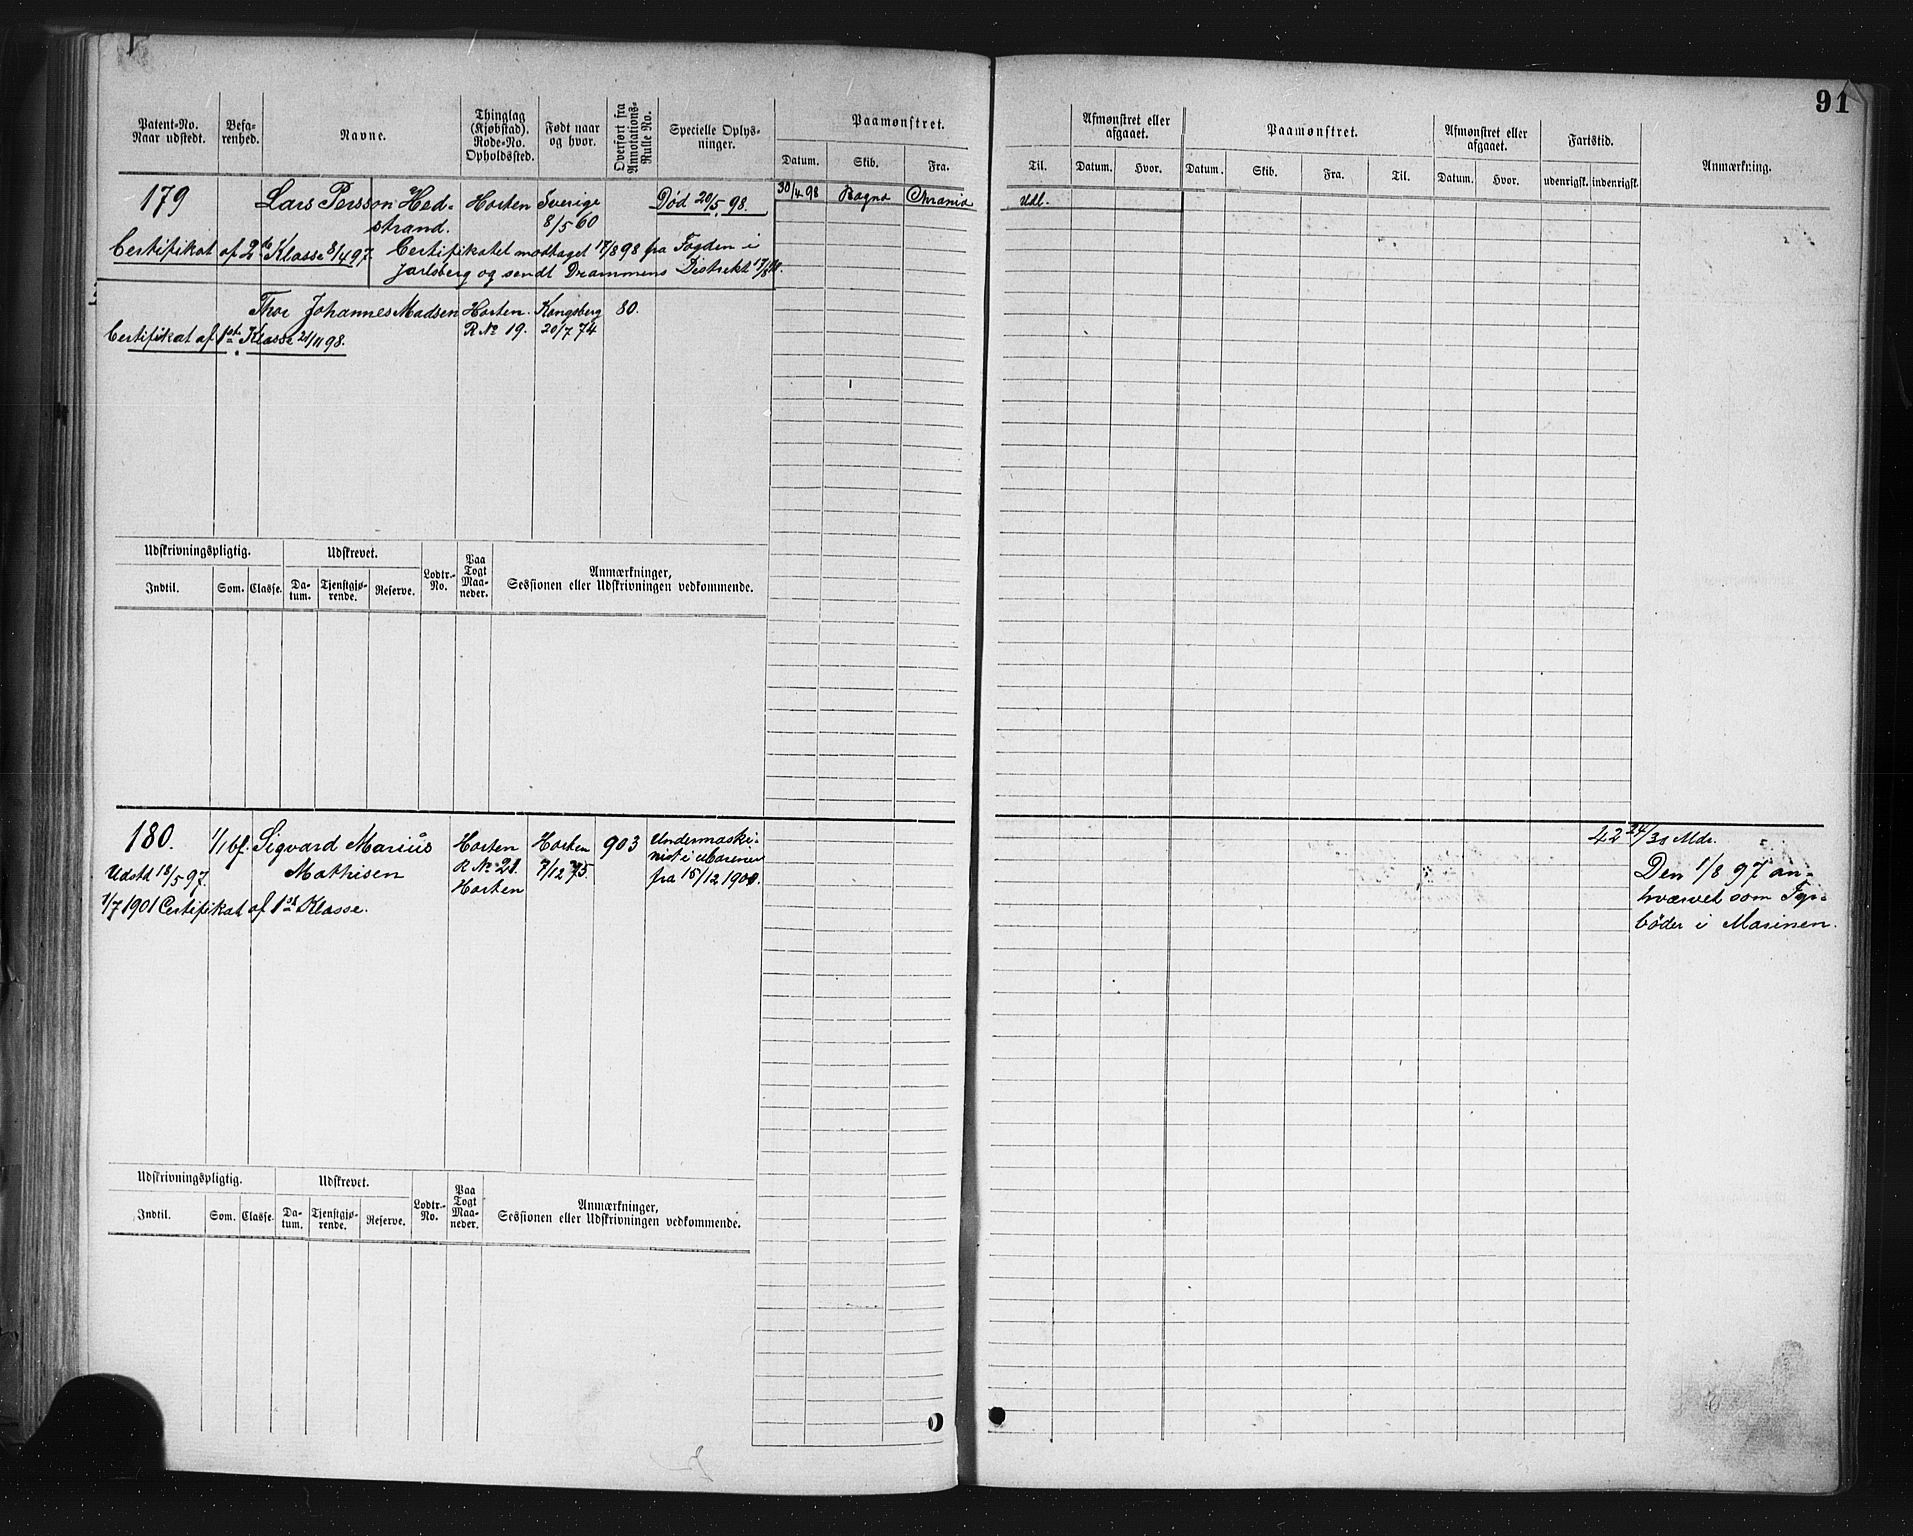 91
Patent-No. Naar udstedt.
Befa-renhed.
Navne.
Thinglag (Kjøbstad). Rode-No. Opholdssted.
Født naar og hvor.
Overført fra Annotations-Rulle No.
Specielle Oplys-ninger.
Paamønstret.
Datum. Skib. Fra.
Til.
Afmønstret eller afgaaet.
Datum. Hvor.
Paamønstret.
Datum. Skib. Fra. Til.
Afmønstret eller afgaaet.
Datum. Hvor.
Fartstid.
udenrigsk. indenrigsk.
Anmærkning.
179 Lars Persson Hed- Horten Sverige Død 20/5 98. 30/4 98 Ragna Chrania Udl.
strand. 8/5 60
Certifikat af 2de Klasse 8/4 97. Certifikatet modtaget 17/8 98 fra Fogden i
Jarlsberg og sendt Drammens Distrikt 17/8
Thor Johannes Madsen Horten. Kongsberg 80.
Certifikat af 1ste Klasse 21/11 98. R No 19. 20/7 74
Udskrivningspligtig. Udskrevet. Lodtr.-No. Paa Togt Maa-neder. Anmærkninger,
Indtil. Som. Classe. Da-tum. Tjenstgjø-rende. Reserve. Sessionen eller Udskrivningen vedkommende.
180. 1/1 bf. Sigvard Marius Horten Horten 903 Undermaski- 42 24/30 Mdr.
Udstd 18/5 97. Mathisen R No 21. 7/12 75. nist i Marinen Den 1/8 97 an-
Horten fra 15/12 1900. hvervet som Fyr-
1/7 1901 Certifikat af 1ste Klasse. böder i Marinen.
Udskrivningspligtig. Udskrevet. Lodtr.-No. Paa Togt Maa-neder. Anmærkninger,
Indtil. Som. Classe. Da-tum. Tjenstgjø-rende. Reserve. Sessionen eller Udskrivningen vedkommende.